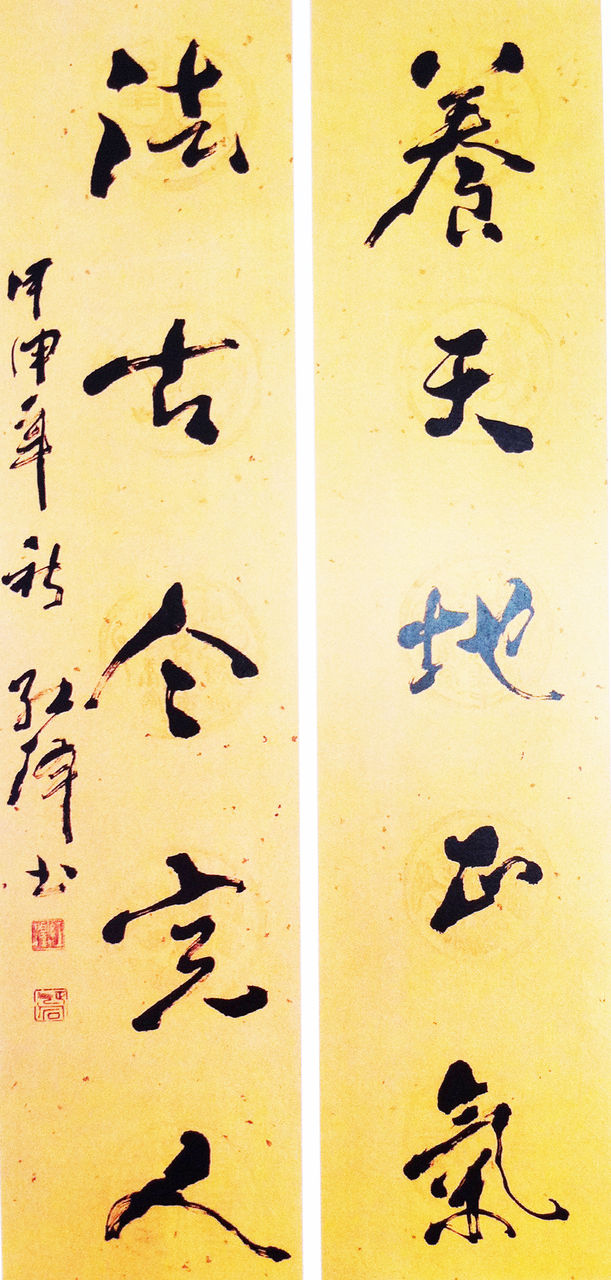 養天地正氣
法古今完人
甲申年秋 红牌书